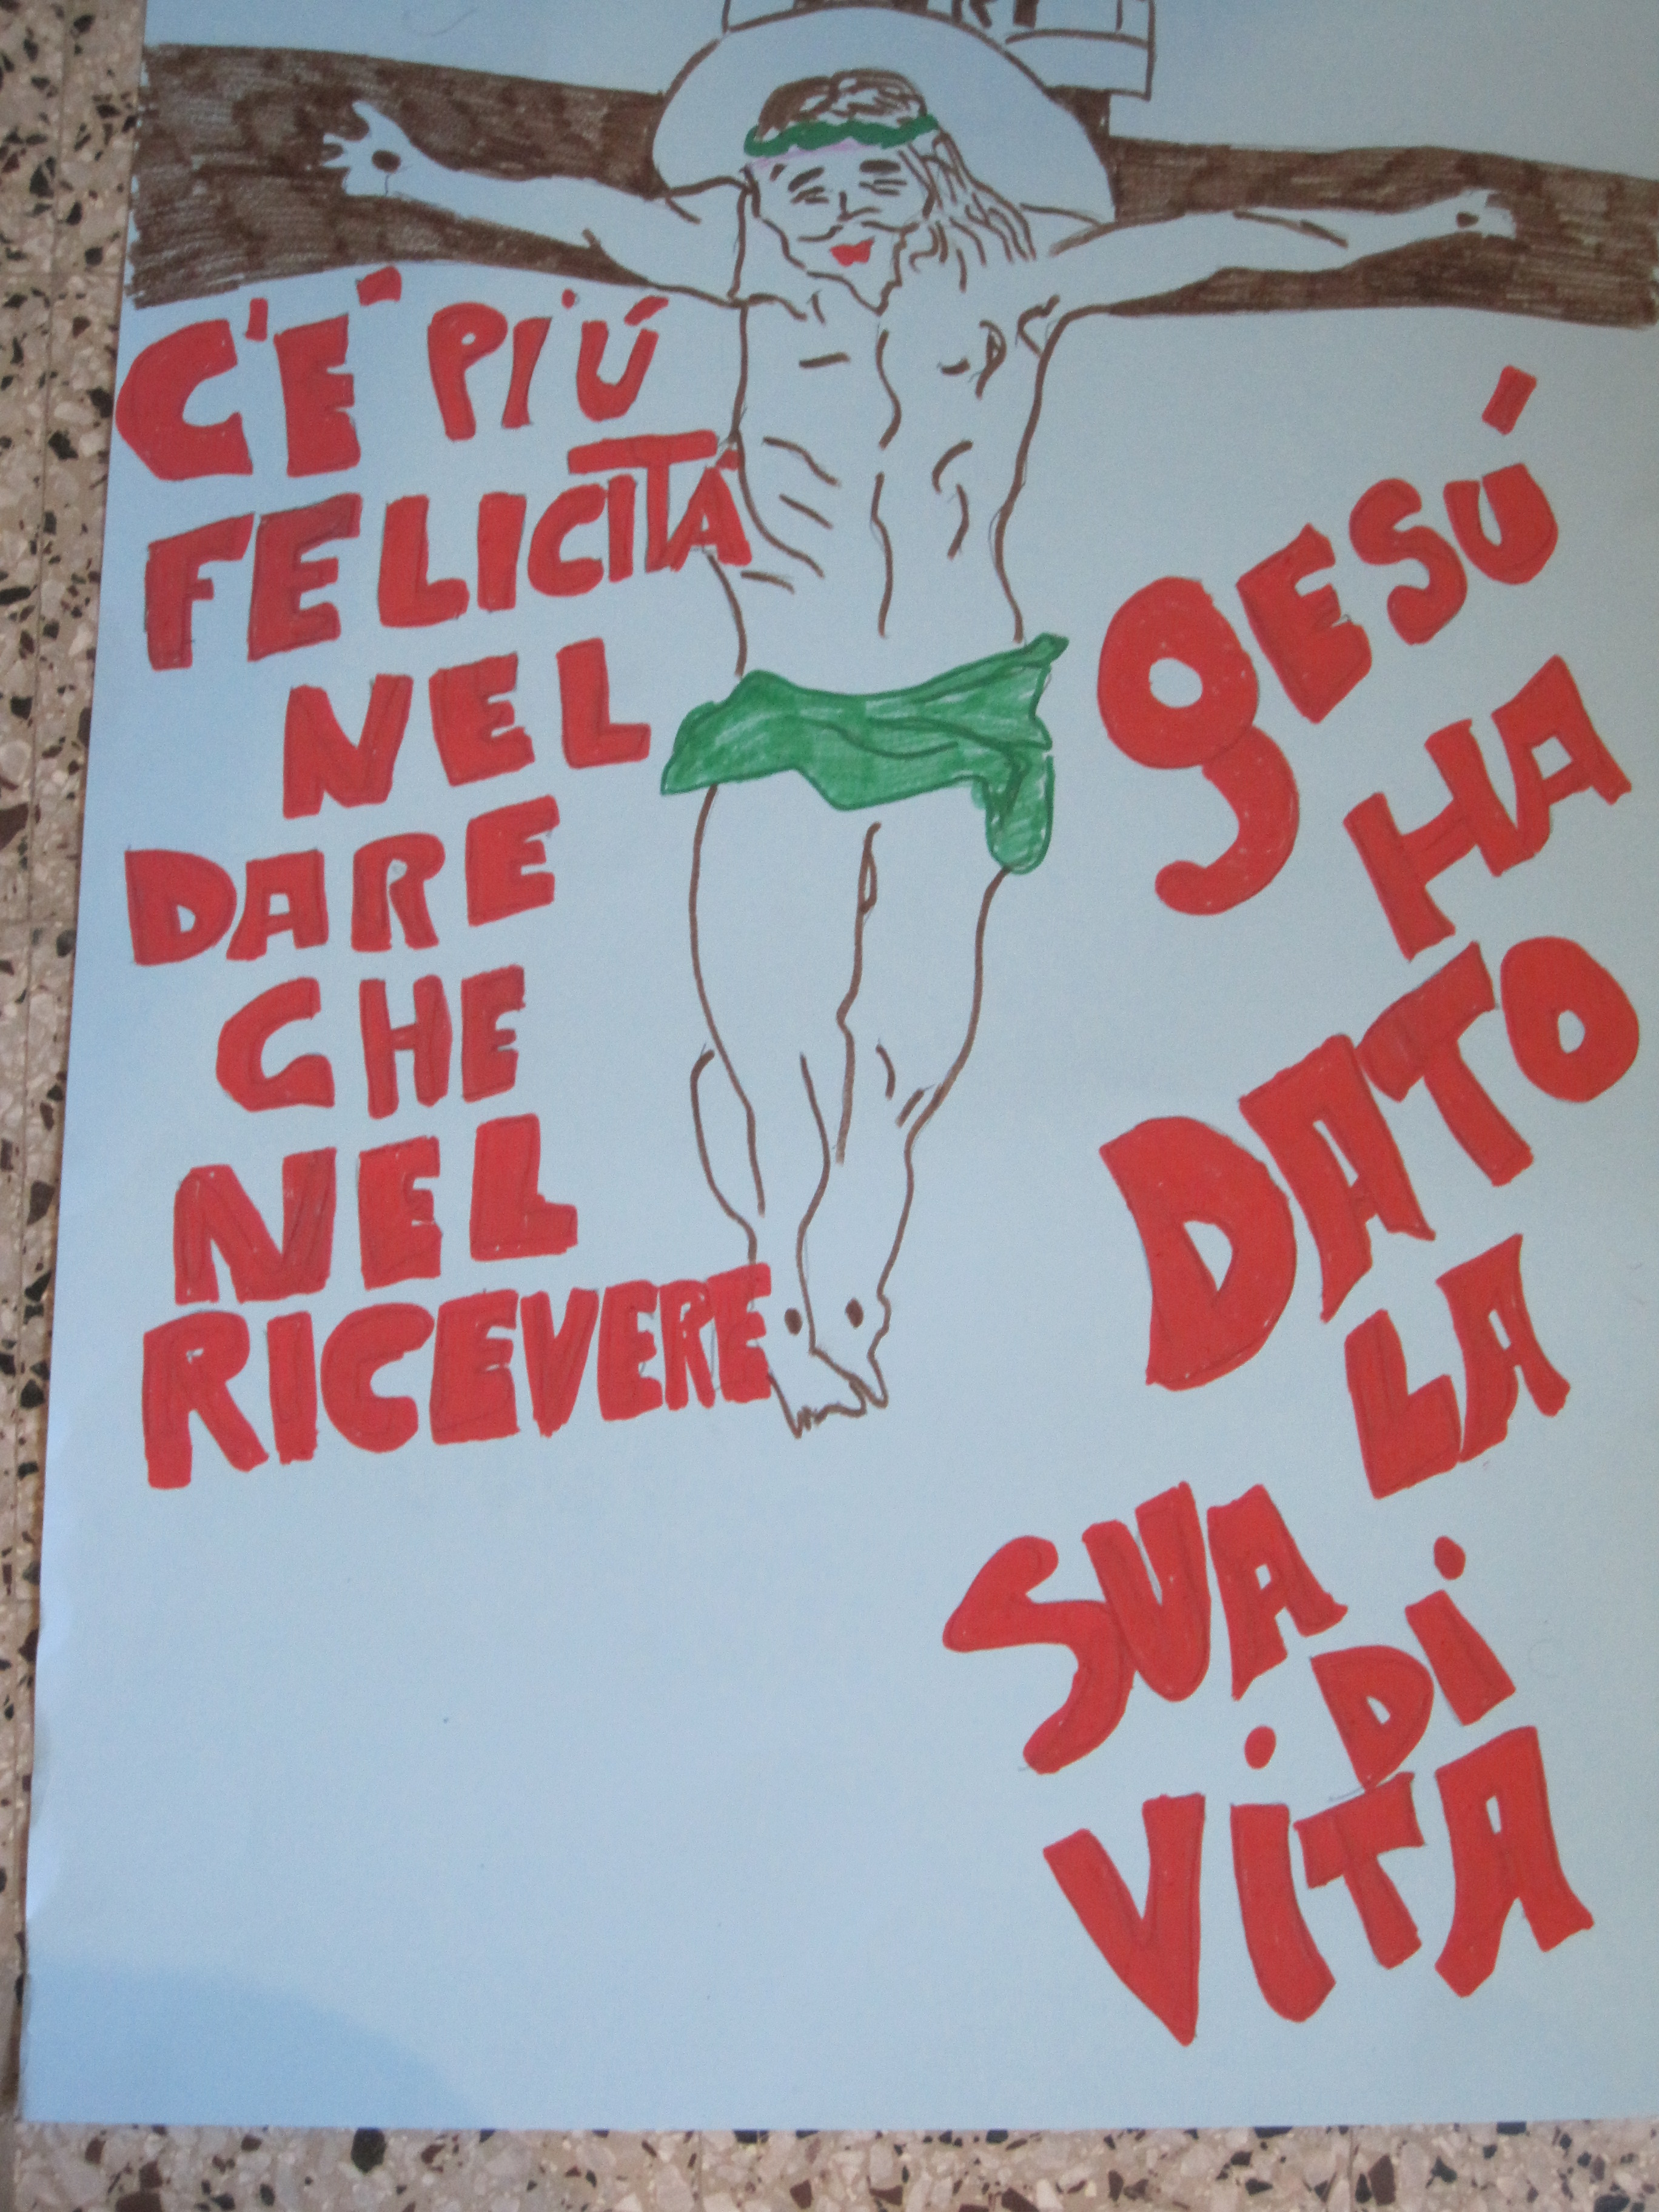 C'É PIÚ
FELICITÁ
NEL
DARE
CHE
NEL
RICEVERE
gESÚ
HA
DATO
LA
SUA
Di
ViTA